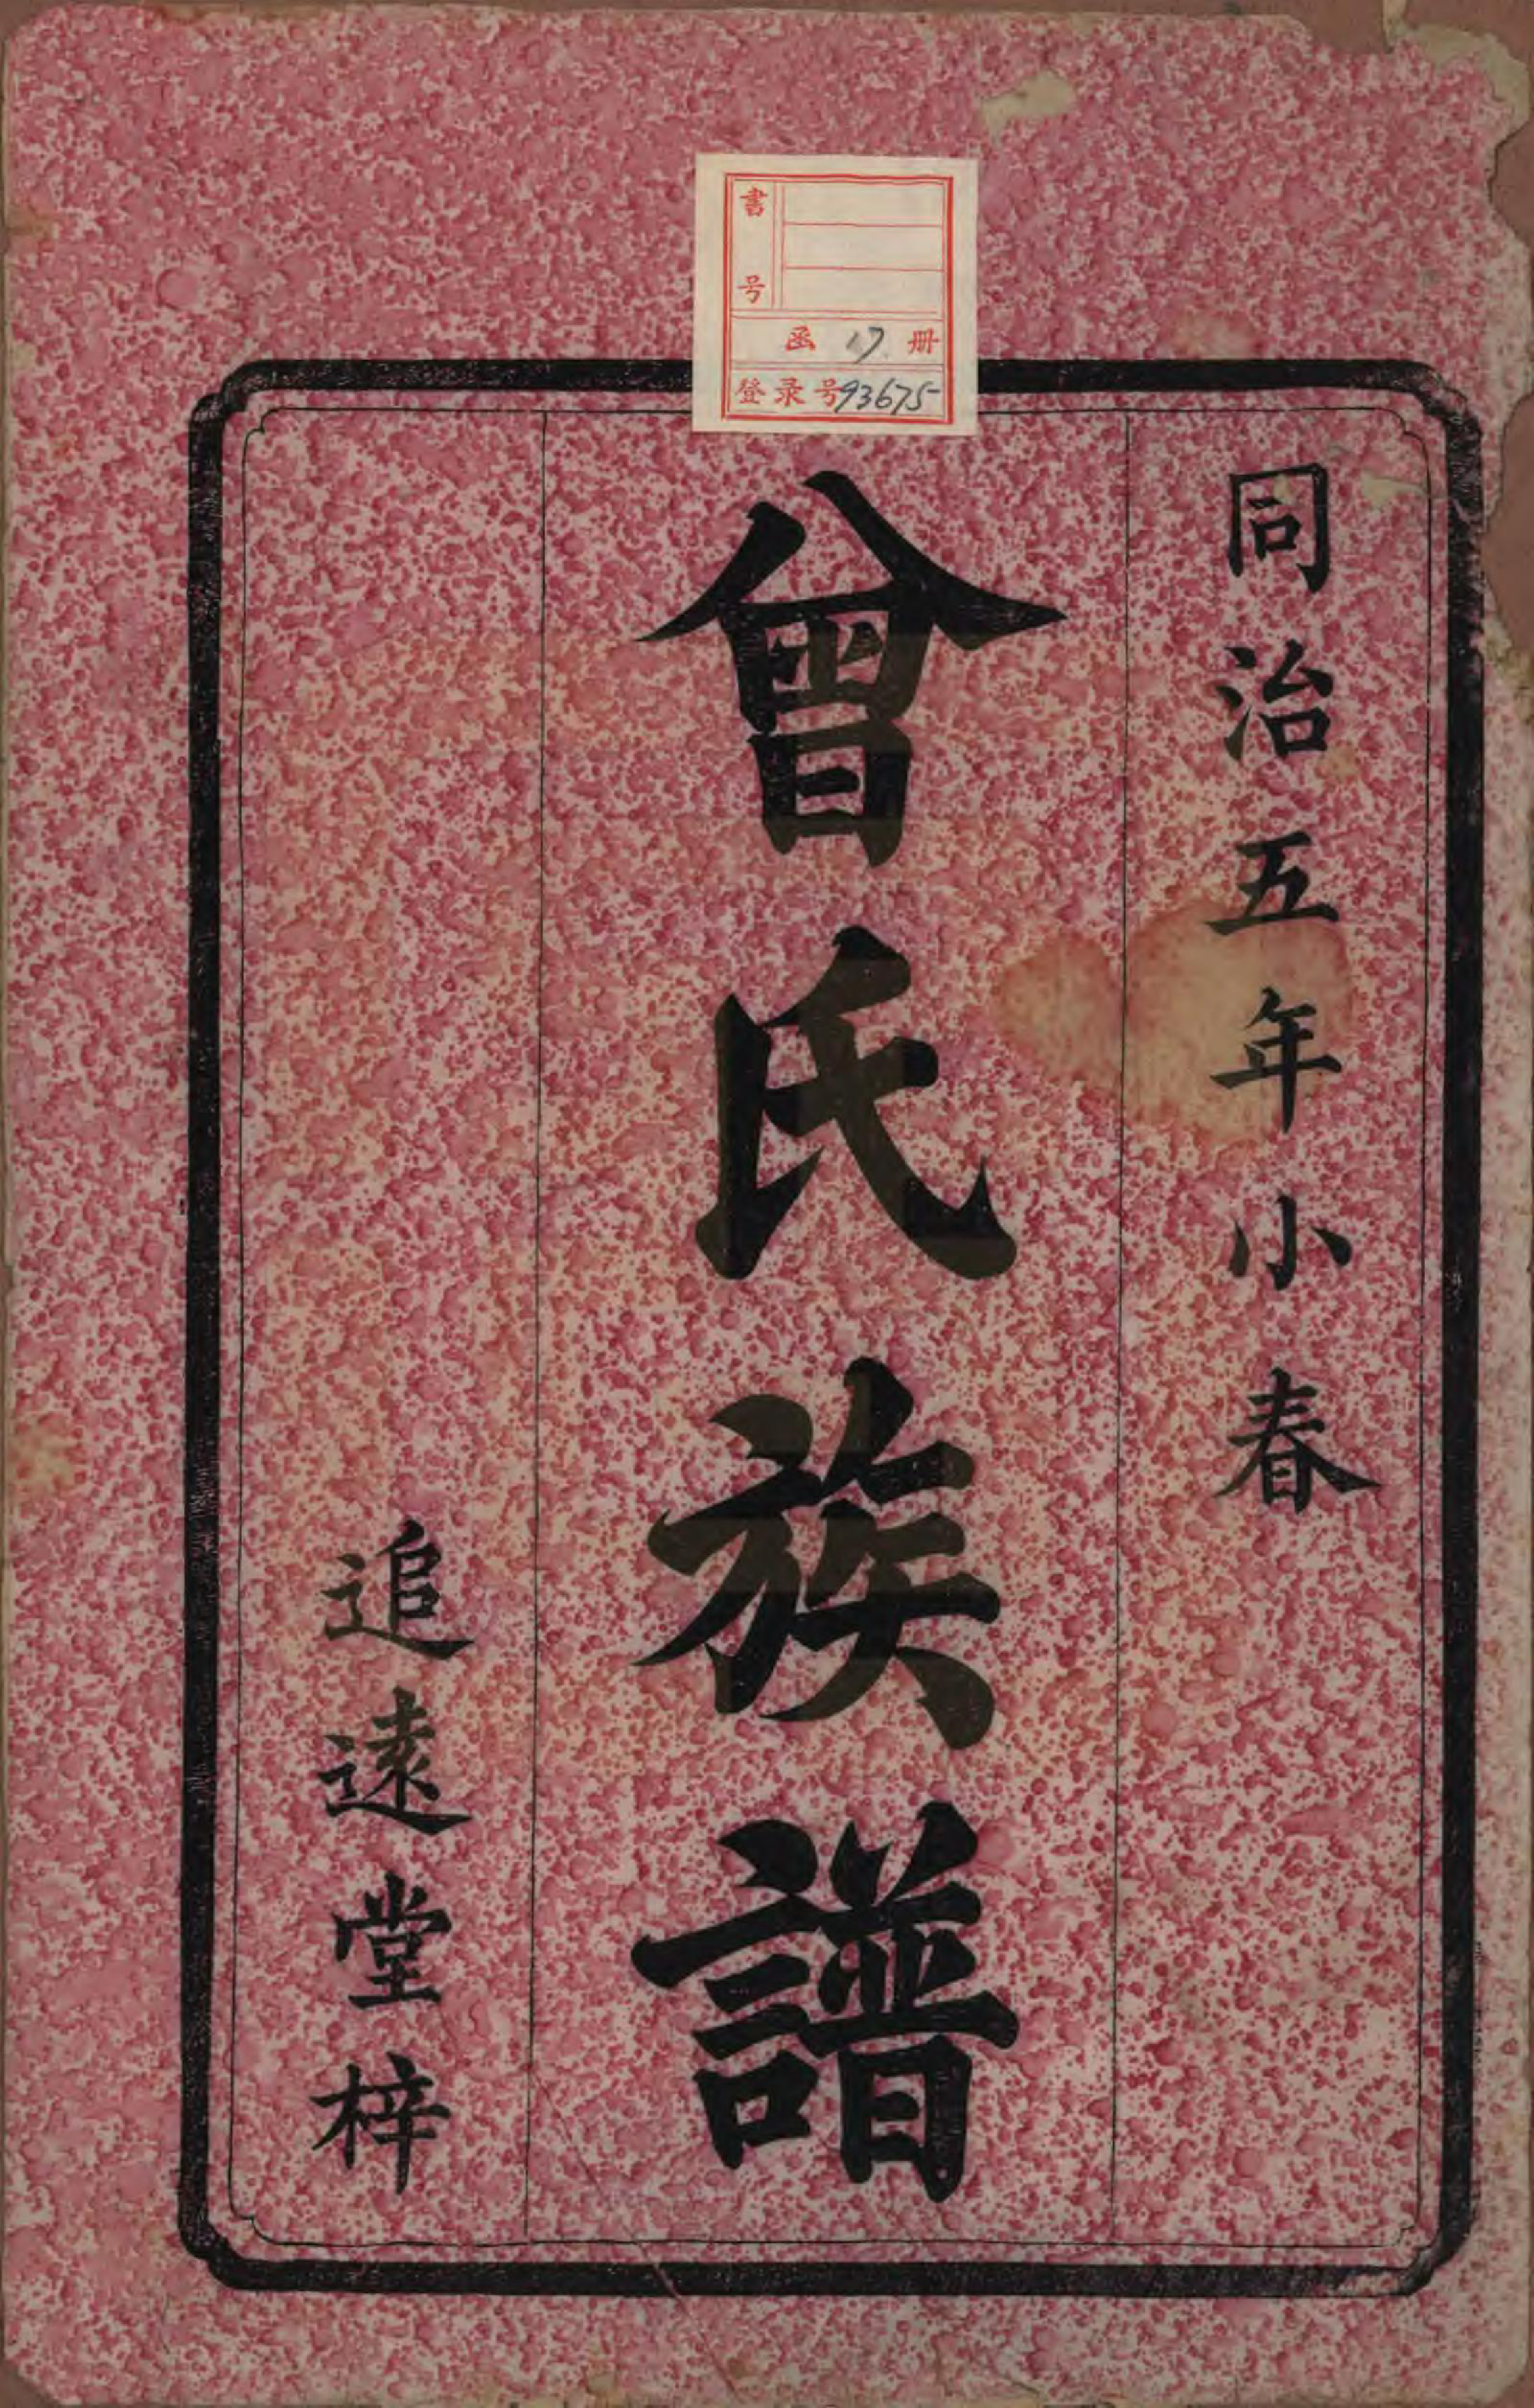 書号
函 17 册
登录号93675
同治五年小春
曾氏族譜
追遠堂梓